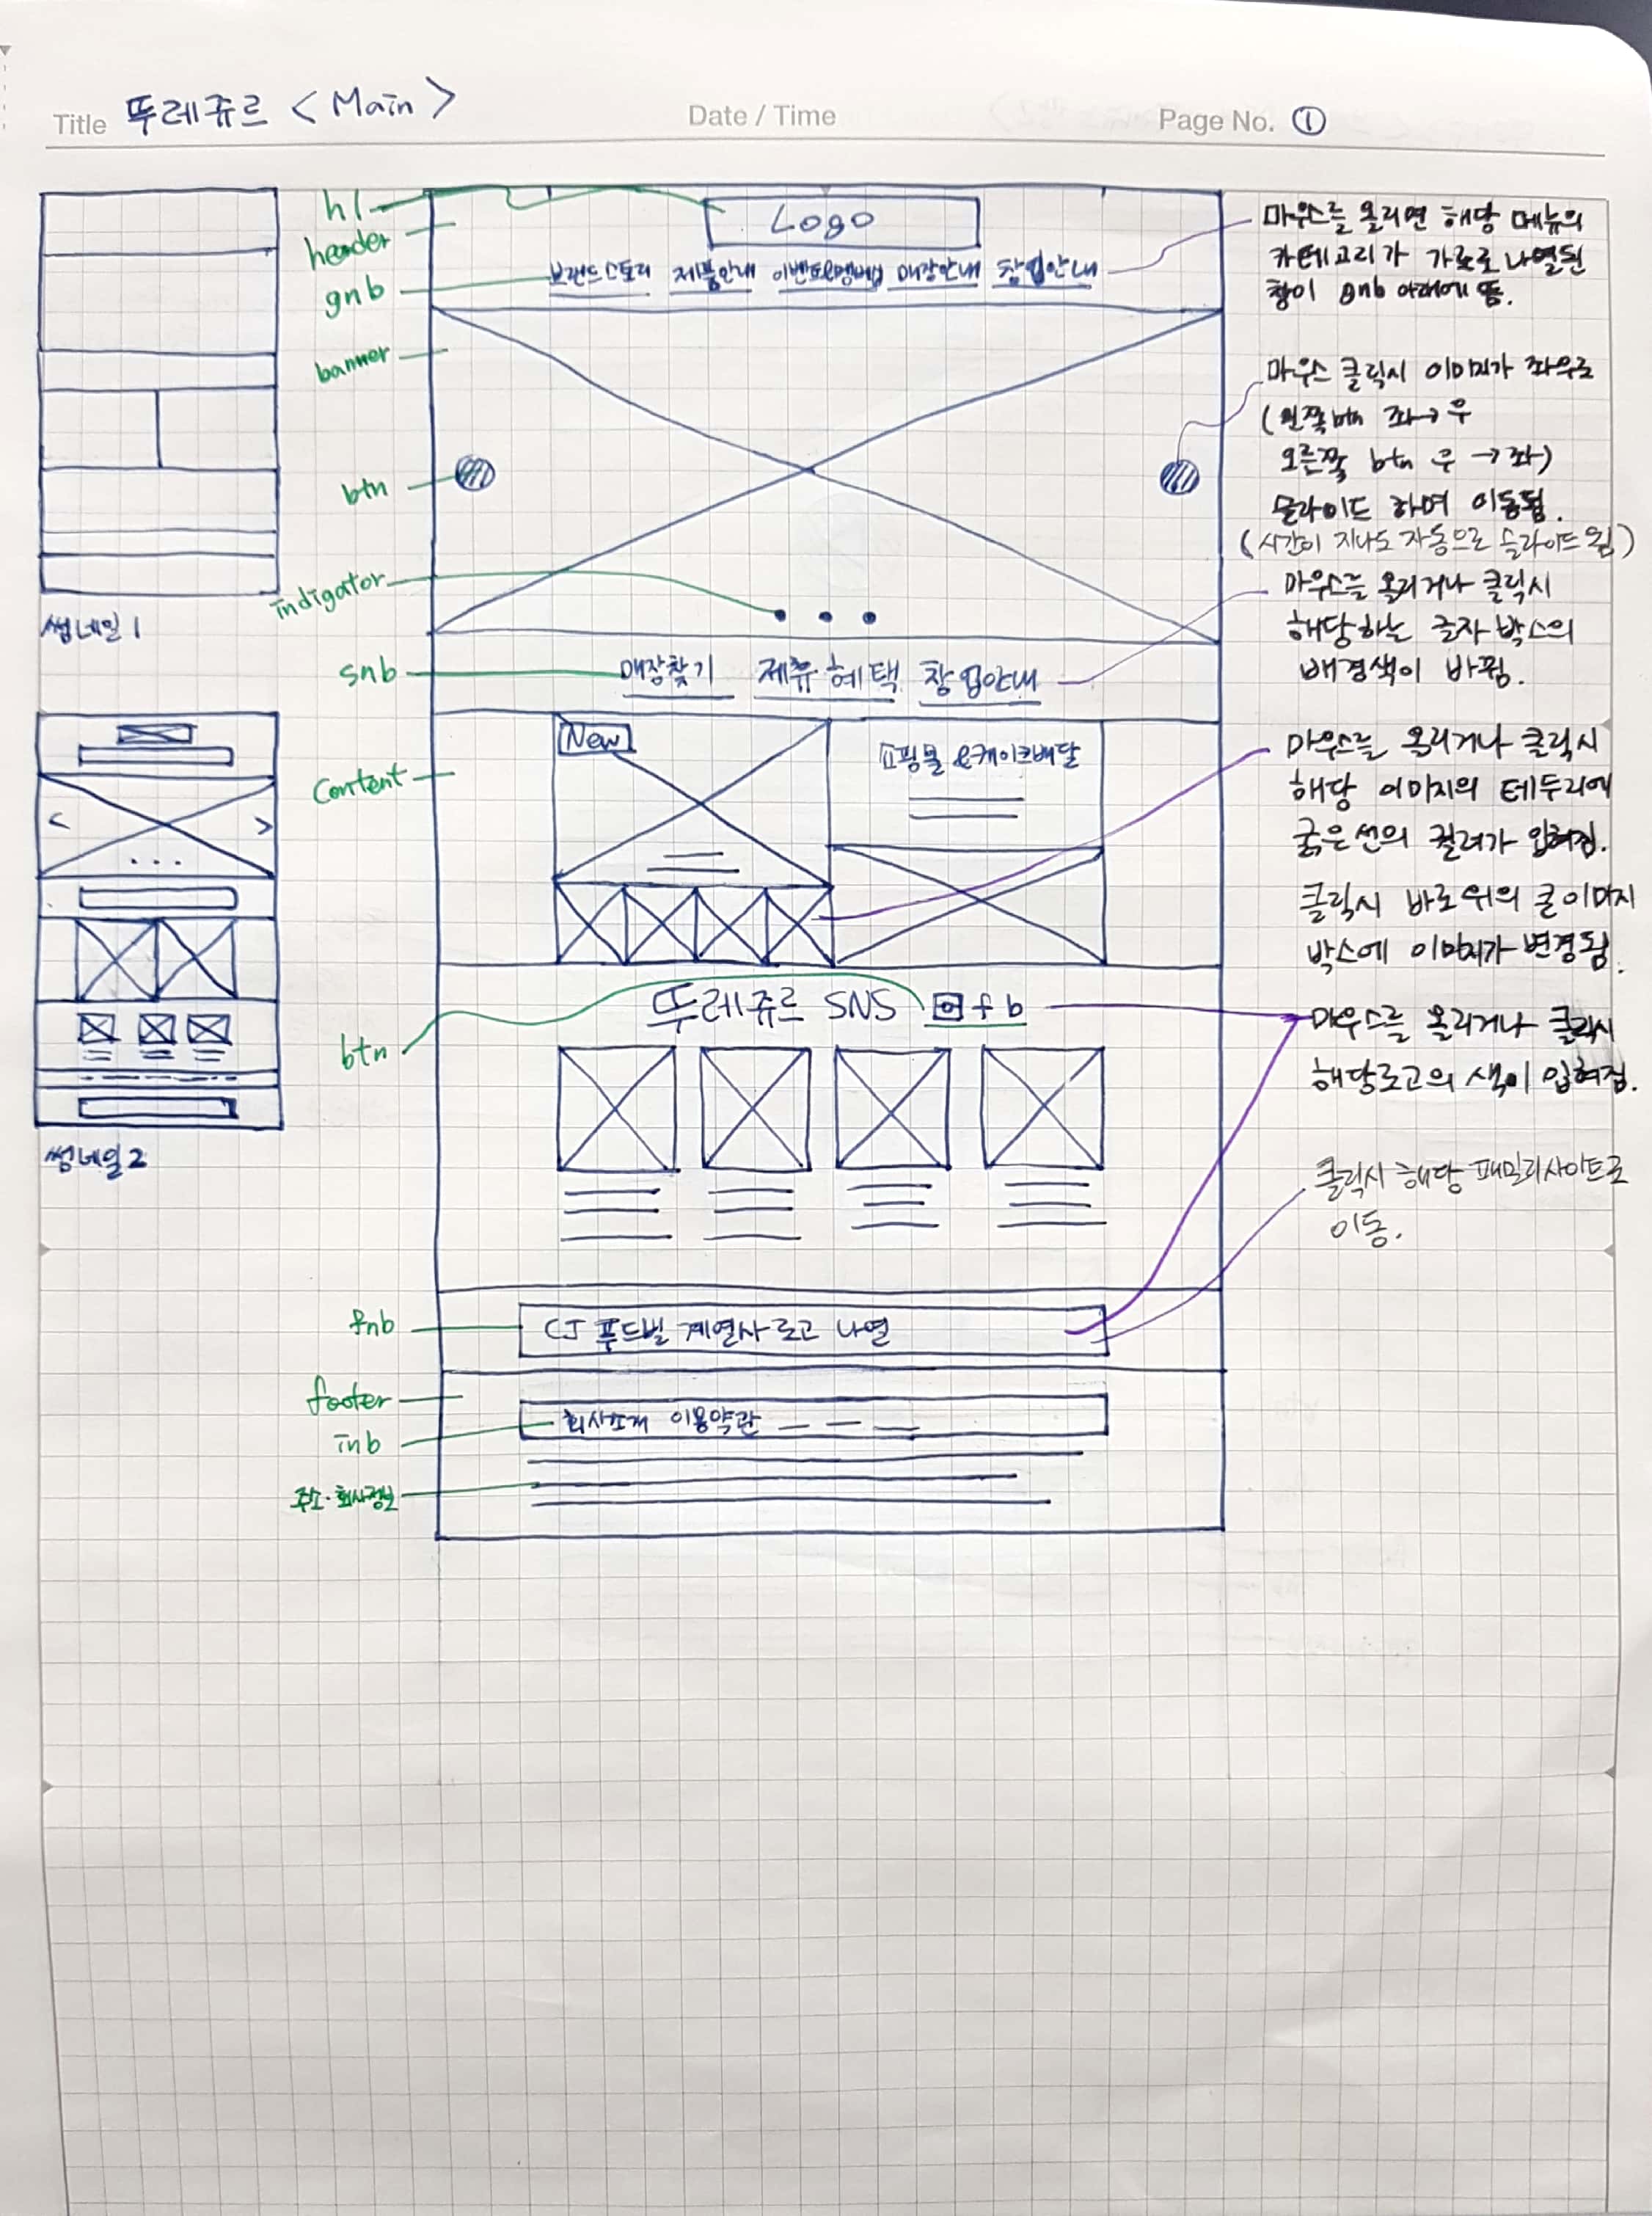 Title 뚜레쥬르 < Main >
Date / Time
Page No. ①
h1
header
gnb
banner
btn
indigator
snb
Content
btn
fnb
footer
inb
주소·회사정보
썸네일 1
썸네일 2
Logo
브랜드스토리 제품안내 이벤트&멤버쉽 매장안내 창업안내
매장찾기 제휴혜택 창업안내
New
쇼핑몰 &케이크배달
뚜레쥬르 SNS f b
CJ 푸드빌 계열사 로고 나열
회사소개 이용약관
마우스를 올리면 해당 메뉴의
카테고리가 가로로 나열된
창이 gnb 아래에 뜸.
마우스 클릭시 이미지가 좌우로
(왼쪽 btn 좌→우
오른쪽 btn 우→좌)
슬라이드 하며 이동됨.
(시간이 지나도 자동으로 슬라이드 됨)
마우스를 올리거나 클릭시
해당하는 글자 박스의
배경색이 바뀜.
마우스를 올리거나 클릭시
해당 이미지의 테두리에
굵은 선의 컬러가 입혀짐.
클릭시 바로 위의 큰 이미지
박스에 이미지가 변경됨.
마우스를 올리거나 클릭시
해당로고의 색이 입혀짐.
클릭시 해당 패밀리사이트로
이동.